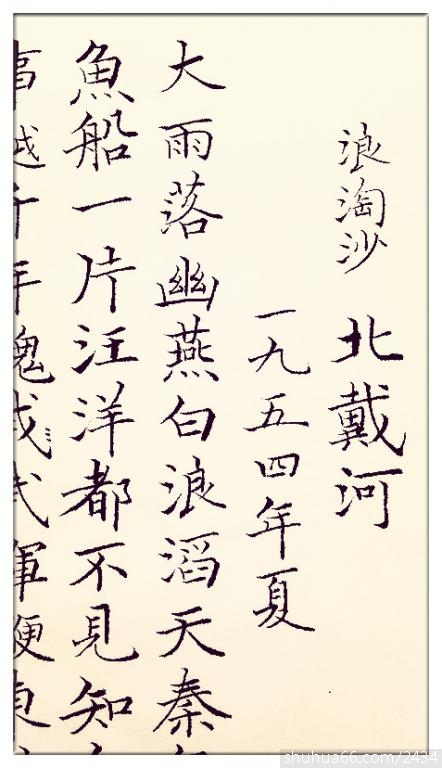 浪淘沙 北戴河
一九五四年夏
大雨落幽燕白浪滔天秦
魚船一片汪洋都不見知
越千年魏武揮鞭
shuhua66.com/2434